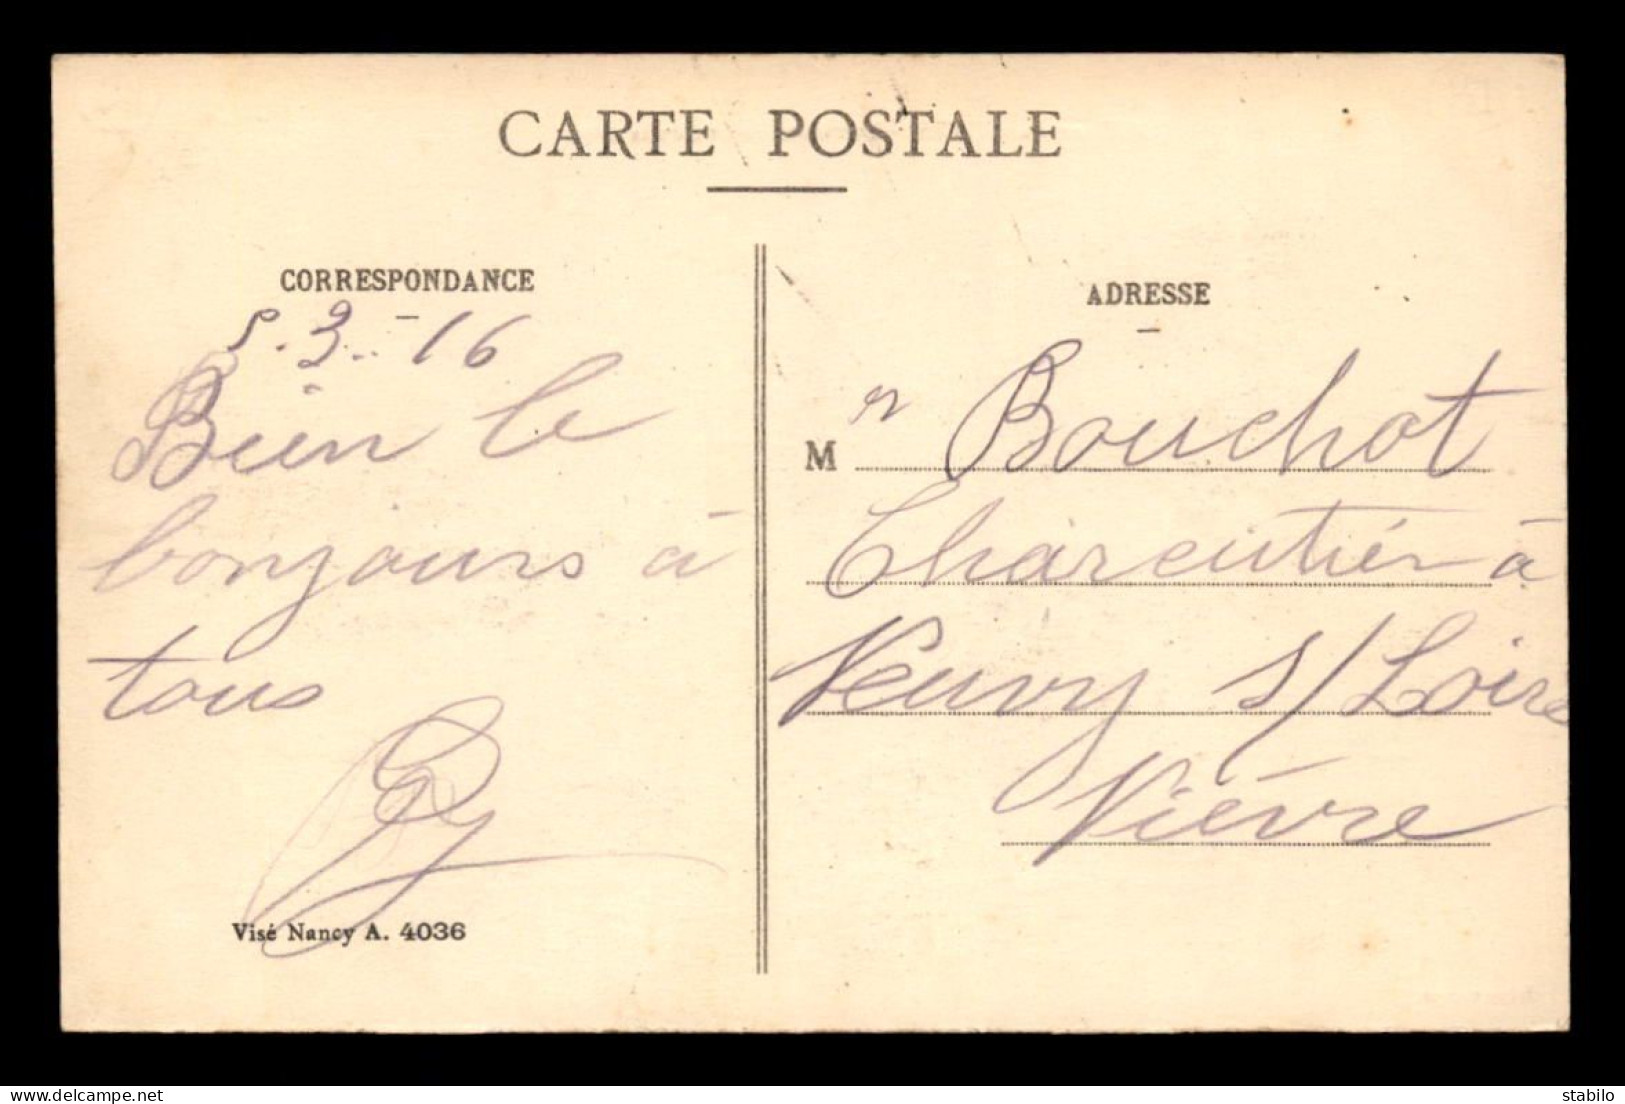 CARTE POSTALE
CORRESPONDANCE
5.3.16
Bien le
bonjours à
tous
Visé Nancy A. 4036
ADRESSE
Mr Bouchot
Charcutier à
Neuvy s/Loire
Nièvre
www.delcampe.net
stabilo